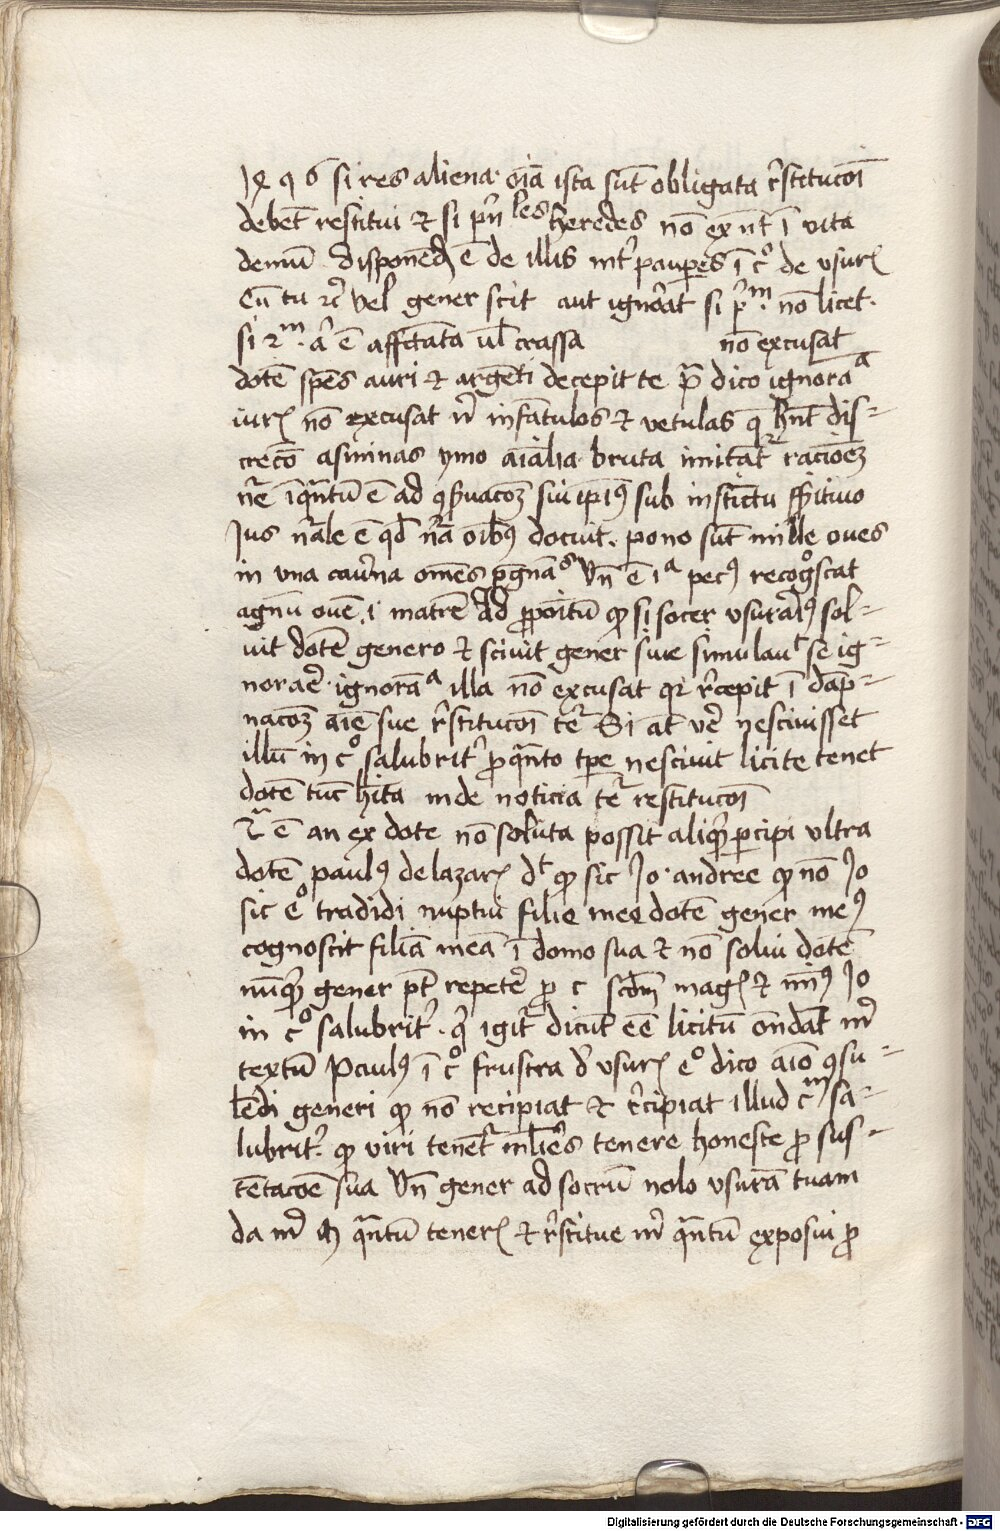 si res aliena oīa ista sūt obligata rstitucōi
debēt restitui et si heredes nō in vita
demū disponēd ē de illis int paupes ī c° de vsur
Cū tu vel gener scit aut ignorāt si p m nō licet
si 2 m aut ē affectata ul crassa nō excusat
dotē spēs auri et argēti decepit te dico ignorā a
iur nō excusat infātulos et vetulas q hnt dis-
crecō asininas ymo aīalia bruta imitāt raciōēz
ē ad sui sub instictu
Jus nrale ē qd nra oībꝰ docuit. pono sūt mille oves
in vna cavna omēs ē 1 a pecꝰ recogscat
agnū ouē matrē Ad ppoītū si socer vsurariꝰ sol-
uit dotē genero et scivit gener siue simulaut se ig-
noraē ignorā a illa nō excusat qr rcepit ī dāp-
nacōz aīe sue rstitucōi tēr Si at vē nescivisset
illū in c° salubrit p qnto tpe nescivit licite tenet
dotē tūc hita inde noticia tēr restitucōi
ē an ex dote nō soluta possit aliq percipi vltra
dotē paulꝰ de lazar dt sic Jo. andree nō Jo
sic e° tradidi nuptui filie mee dotē gener meꝰ
cognoscit filiā meā ī domo sua et nō solui dotē
nūq gener pt repetē p c scdm mag et Jo
in c° salubrit. q igit dicūt eē licitū ondāt m
textū Pauluꝰ ī c° frustra d vsur e° dico aīo gsu-
lēdi generi nō recipiat et rcipiat illud c m sa-
lubrit. viri tenēt mlieēs tenere honeste p sus-
tētacōe sua Vn gener ad socrū nolo vsurā tuam
da m qntū tener et rstitue m qntū exposui p
Digitalisierung gefördert durch die Deutsche Forschungsgemeinschaft - DFG